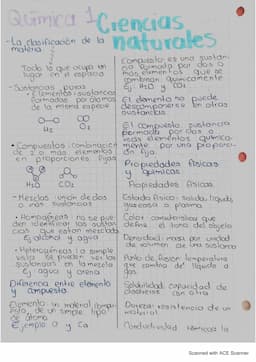 Química 1 Ciencias
naturales
- La clasificación de la
materia
Todo lo que ocupa un
lugar en el espacio
- Sustancias puras
• Elementos: sustancias
formadas por átomos
de la misma especie
H₂ O₂
• Compuestos: combinación
de 2 o más elementos
en proporciones fijas
H₂O CO₂
- Mezclas: unión de dos
o más sustancias
• Homogéneas: no se pue
den identificar las sustan
cias que están mezcladas
Ej: alcohol y agua
• Heterogéneas: a simple
vista se pueden ver las
sustancias en la mezcla
Ej: agua y arena
Diferencia entre elemento
y compuesto
Elemento: un material compu
esto de un simple tipo
de átomo
Ejemplo O y Ca
Compuesto: es una sustan
cia formada por dos o
más elementos que se
combinan químicamente
Ej: H₂O y CO₂
El elemento no puede
descomponerse en otras
sustancias
El compuesto sustancia
formada por dos o
más elementos química-
mente por una proporci-
ón fija.
Propiedades físicas
y químicas
Propiedades físicas
Estado físico: sólido, líquido,
gaseoso o plasma
Color: característica que
define el tono del objeto
Densidad: masa por unidad
de volumen de una sustancia
Punto de fusión: temperatura
que cambia de líquido a
gas
Solubilidad: capacidad de
disolverse con otra
Dureza: resistencia de un
material
Conductividad térmica: la
Scanned with ACE Scanner